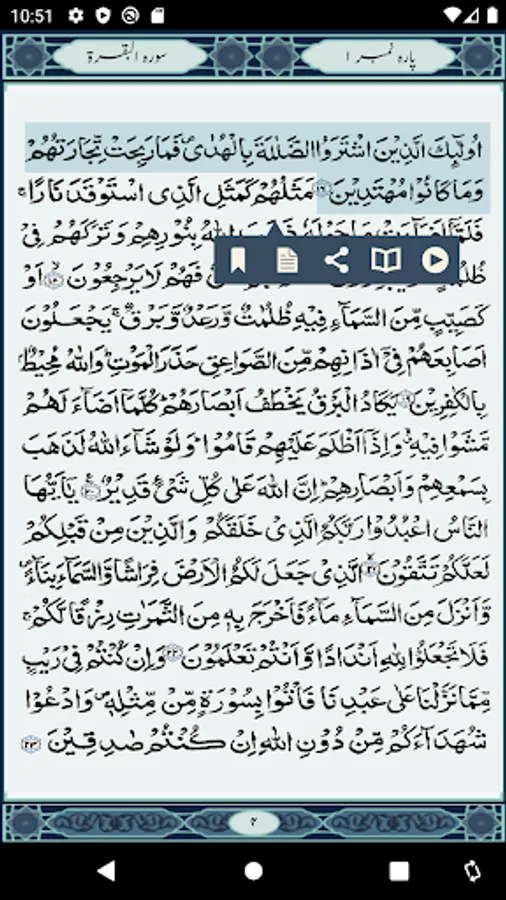 10:51
سورة البقرة
پاره نمبر ۱
اُولٰٓئِكَ الَّذِيْنَ اشْتَرَوُا الضَّلٰلَةَ بِالْهُدٰى ۪ فَمَا رَبِحَتْ تِّجَارَتُهُمْ
وَمَا كَانُوْا مُهْتَدِيْنَ ۝۱۶ مَثَلُهُمْ كَمَثَلِ الَّذِى اسْتَوْقَدَ نَارًا ۚ
فَلَمَّاۤ بِنُوْرِهِمْ وَتَرَكَهُمْ فِىْ
فَهُمْ لَا يَرْجِعُوْنَ ۝۱۸ اَوْ
كَصَيِّبٍ مِّنَ السَّمَآءِ فِيْهِ ظُلُمٰتٌ وَّرَعْدٌ وَّبَرْقٌ ۚ يَجْعَلُوْنَ
اَصَابِعَهُمْ فِىْۤ اٰذَانِهِمْ مِّنَ الصَّوَاعِقِ حَذَرَ الْمَوْتِ ؕ وَاللّٰهُ مُحِيْطٌۢ
بِالْكٰفِرِيْنَ ۝۱۹ يَكَادُ الْبَرْقُ يَخْطَفُ اَبْصَارَهُمْ ؕ كُلَّمَاۤ اَضَآءَ لَهُمْ
مَّشَوْا فِيْهِ ۙ وَاِذَاۤ اَظْلَمَ عَلَيْهِمْ قَامُوْا ؕ وَلَوْ شَآءَ اللّٰهُ لَذَهَبَ
بِسَمْعِهِمْ وَاَبْصَارِهِمْ ؕ اِنَّ اللّٰهَ عَلٰى كُلِّ شَىْءٍ قَدِيْرٌ ۝۲۰ يٰۤاَيُّهَا
النَّاسُ اعْبُدُوْا رَبَّكُمُ الَّذِىْ خَلَقَكُمْ وَالَّذِيْنَ مِنْ قَبْلِكُمْ
لَعَلَّكُمْ تَتَّقُوْنَ ۝۲۱ الَّذِىْ جَعَلَ لَكُمُ الْاَرْضَ فِرَاشًا وَّالسَّمَآءَ بِنَآءً ۪
وَّاَنْزَلَ مِنَ السَّمَآءِ مَآءً فَاَخْرَجَ بِهٖ مِنَ الثَّمَرٰتِ رِزْقًا لَّكُمْ ۚ
فَلَا تَجْعَلُوْا لِلّٰهِ اَنْدَادًا وَّاَنْتُمْ تَعْلَمُوْنَ ۝۲۲ وَاِنْ كُنْتُمْ فِىْ رَيْبٍ
مِّمَّا نَزَّلْنَا عَلٰى عَبْدِنَا فَاْتُوْا بِسُوْرَةٍ مِّنْ مِّثْلِهٖ ۪ وَادْعُوْا
شُهَدَآءَكُمْ مِّنْ دُوْنِ اللّٰهِ اِنْ كُنْتُمْ صٰدِقِيْنَ ۝۲۳
۴